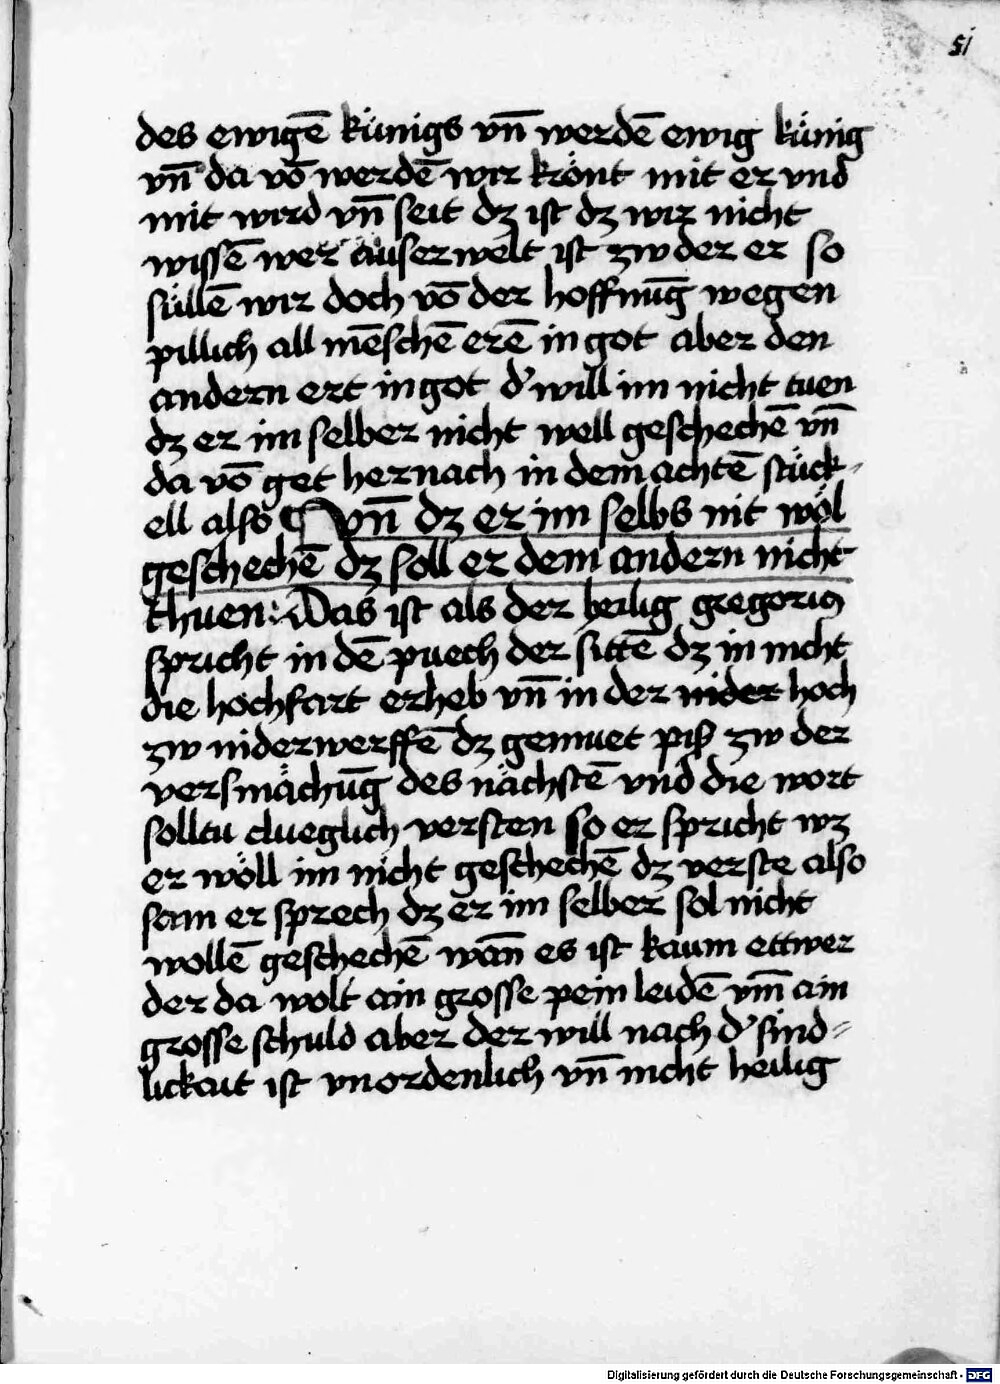 51
des ewigē künigs vn̄ werdē ewig künig
vn̄ da vō werdē wir krönt mit er vnd
mit wird vn̄ seit dz ist dz wir nicht
wissē wer auserwelt ist zw der er so
süllē wir doch vō der hoffnūg wegen
pillich all mēschē erē in got aber den
andern ert in got d' will im nicht tuen
dz er im selber nicht well geschechē vn̄
da vō get hernach in dem achtē stück-
ell also Vn̄ dz er im selbs nit wöl
geschechē dz soll er dem andern nicht
thuen: Das ist als der heilig gregorius
spricht in dē puech der sittē dz in nicht
die hochfart erheb vn̄ in der nider hoch
zw niderwerffē dz gemuet piß zw der
versmächūg des nächstē vnd die wort
solltu clueglich versten so er spricht wz
er wöll im nicht geschechē dz verste also
sam er sprech dz er im selber sol nicht
wollē geschechē wan̄ es ist kaum ettwer
der da wolt ain grosse pein leidē vm̄ ain
grosse schuld aber der will nach d' sind-
lickait ist vnordenlich vn̄ nicht heilig
Digitalisierung gefördert durch die Deutsche Forschungsgemeinschaft - DFG